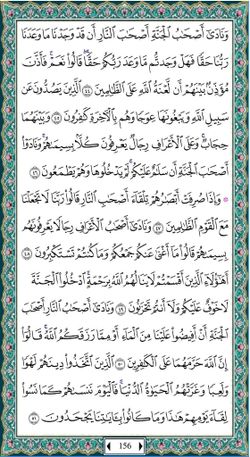 وَنَادَىٰٓ أَصْحَٰبُ ٱلْجَنَّةِ أَصْحَٰبَ ٱلنَّارِ أَن قَدْ وَجَدْنَا مَا وَعَدَنَا
رَبُّنَا حَقًّا فَهَلْ وَجَدتُّم مَّا وَعَدَ رَبُّكُمْ حَقًّا ۖ قَالُوا۟ نَعَمْ ۚ فَأَذَّنَ
مُؤَذِّنٌۢ بَيْنَهُمْ أَن لَّعْنَةُ ٱللَّهِ عَلَى ٱلظَّٰلِمِينَ ٤٤ ٱلَّذِينَ يَصُدُّونَ عَن
سَبِيلِ ٱللَّهِ وَيَبْغُونَهَا عِوَجًا وَهُم بِٱلْءَاخِرَةِ كَٰفِرُونَ ٤٥ وَبَيْنَهُمَا
حِجَابٌ ۚ وَعَلَى ٱلْأَعْرَافِ رِجَالٌ يَعْرِفُونَ كُلًّۢا بِسِيمَىٰهُمْ ۚ وَنَادَوْا۟
أَصْحَٰبَ ٱلْجَنَّةِ أَن سَلَٰمٌ عَلَيْكُمْ ۚ لَمْ يَدْخُلُوهَا وَهُمْ يَطْمَعُونَ ٤٦
۞ وَإِذَا صُرِفَتْ أَبْصَٰرُهُمْ تِلْقَآءَ أَصْحَٰبِ ٱلنَّارِ قَالُوا۟ رَبَّنَا لَا تَجْعَلْنَا
مَعَ ٱلْقَوْمِ ٱلظَّٰلِمِينَ ٤٧ وَنَادَىٰٓ أَصْحَٰبُ ٱلْأَعْرَافِ رِجَالًا يَعْرِفُونَهُم
بِسِيمَىٰهُمْ قَالُوا۟ مَآ أَغْنَىٰ عَنكُمْ جَمْعُكُمْ وَمَا كُنتُمْ تَسْتَكْبِرُونَ ٤٨
أَهَٰٓؤُلَآءِ ٱلَّذِينَ أَقْسَمْتُمْ لَا يَنَالُهُمُ ٱللَّهُ بِرَحْمَةٍ ۚ ٱدْخُلُوا۟ ٱلْجَنَّةَ
لَا خَوْفٌ عَلَيْكُمْ وَلَآ أَنتُمْ تَحْزَنُونَ ٤٩ وَنَادَىٰٓ أَصْحَٰبُ ٱلنَّارِ أَصْحَٰبَ
ٱلْجَنَّةِ أَنْ أَفِيضُوا۟ عَلَيْنَا مِنَ ٱلْمَآءِ أَوْ مِمَّا رَزَقَكُمُ ٱللَّهُ ۚ قَالُوٓا۟
إِنَّ ٱللَّهَ حَرَّمَهُمَا عَلَى ٱلْكَٰفِرِينَ ٥٠ ٱلَّذِينَ ٱتَّخَذُوا۟ دِينَهُمْ لَهْوًا
وَلَعِبًا وَغَرَّتْهُمُ ٱلْحَيَوٰةُ ٱلدُّنْيَا ۚ فَٱلْيَوْمَ نَنسَىٰهُمْ كَمَا نَسُوا۟
لِقَآءَ يَوْمِهِمْ هَٰذَا وَمَا كَانُوا۟ بِـَٔايَٰتِنَا يَجْحَدُونَ ٥١
156